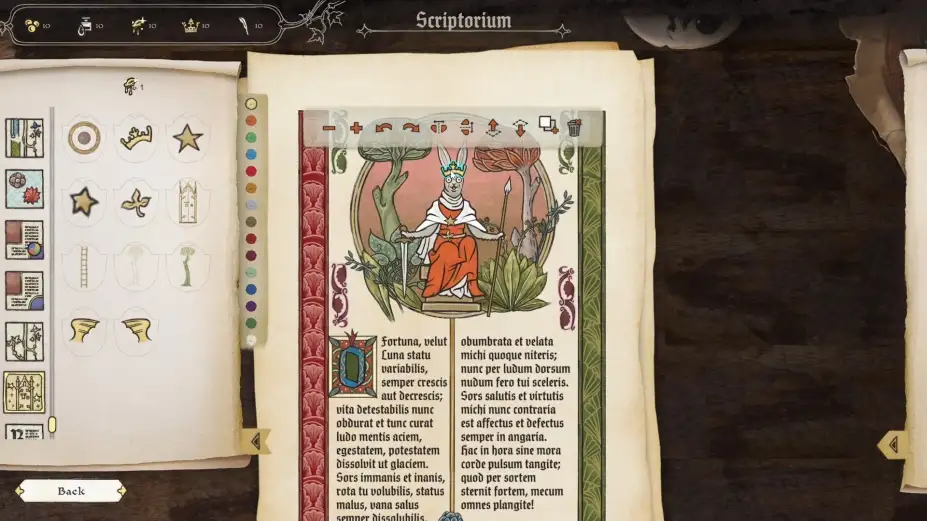 10 10 10 10 10
Scriptorium
1
Fortuna, velut
Luna statu
variabilis,
semper crescis
aut decrescis;
vita detestabilis nunc
obdurat et tunc curat
ludo mentis aciem,
egestatem, potestatem
dissolvit ut glaciem.
Sors immanis et inanis,
rota tu volubilis, status
malus, vana salus
semper dissolubilis,
obumbrata et velata
michi quoque niteris;
nunc per ludum dorsum
nudum fero tui sceleris.
Sors salutis et virtutis
michi nunc contraria
est affectus et defectus
semper in angaria.
Hac in hora sine mora
corde pulsum tangite;
quod per sortem
sternit fortem, mecum
omnes plangite!
Back